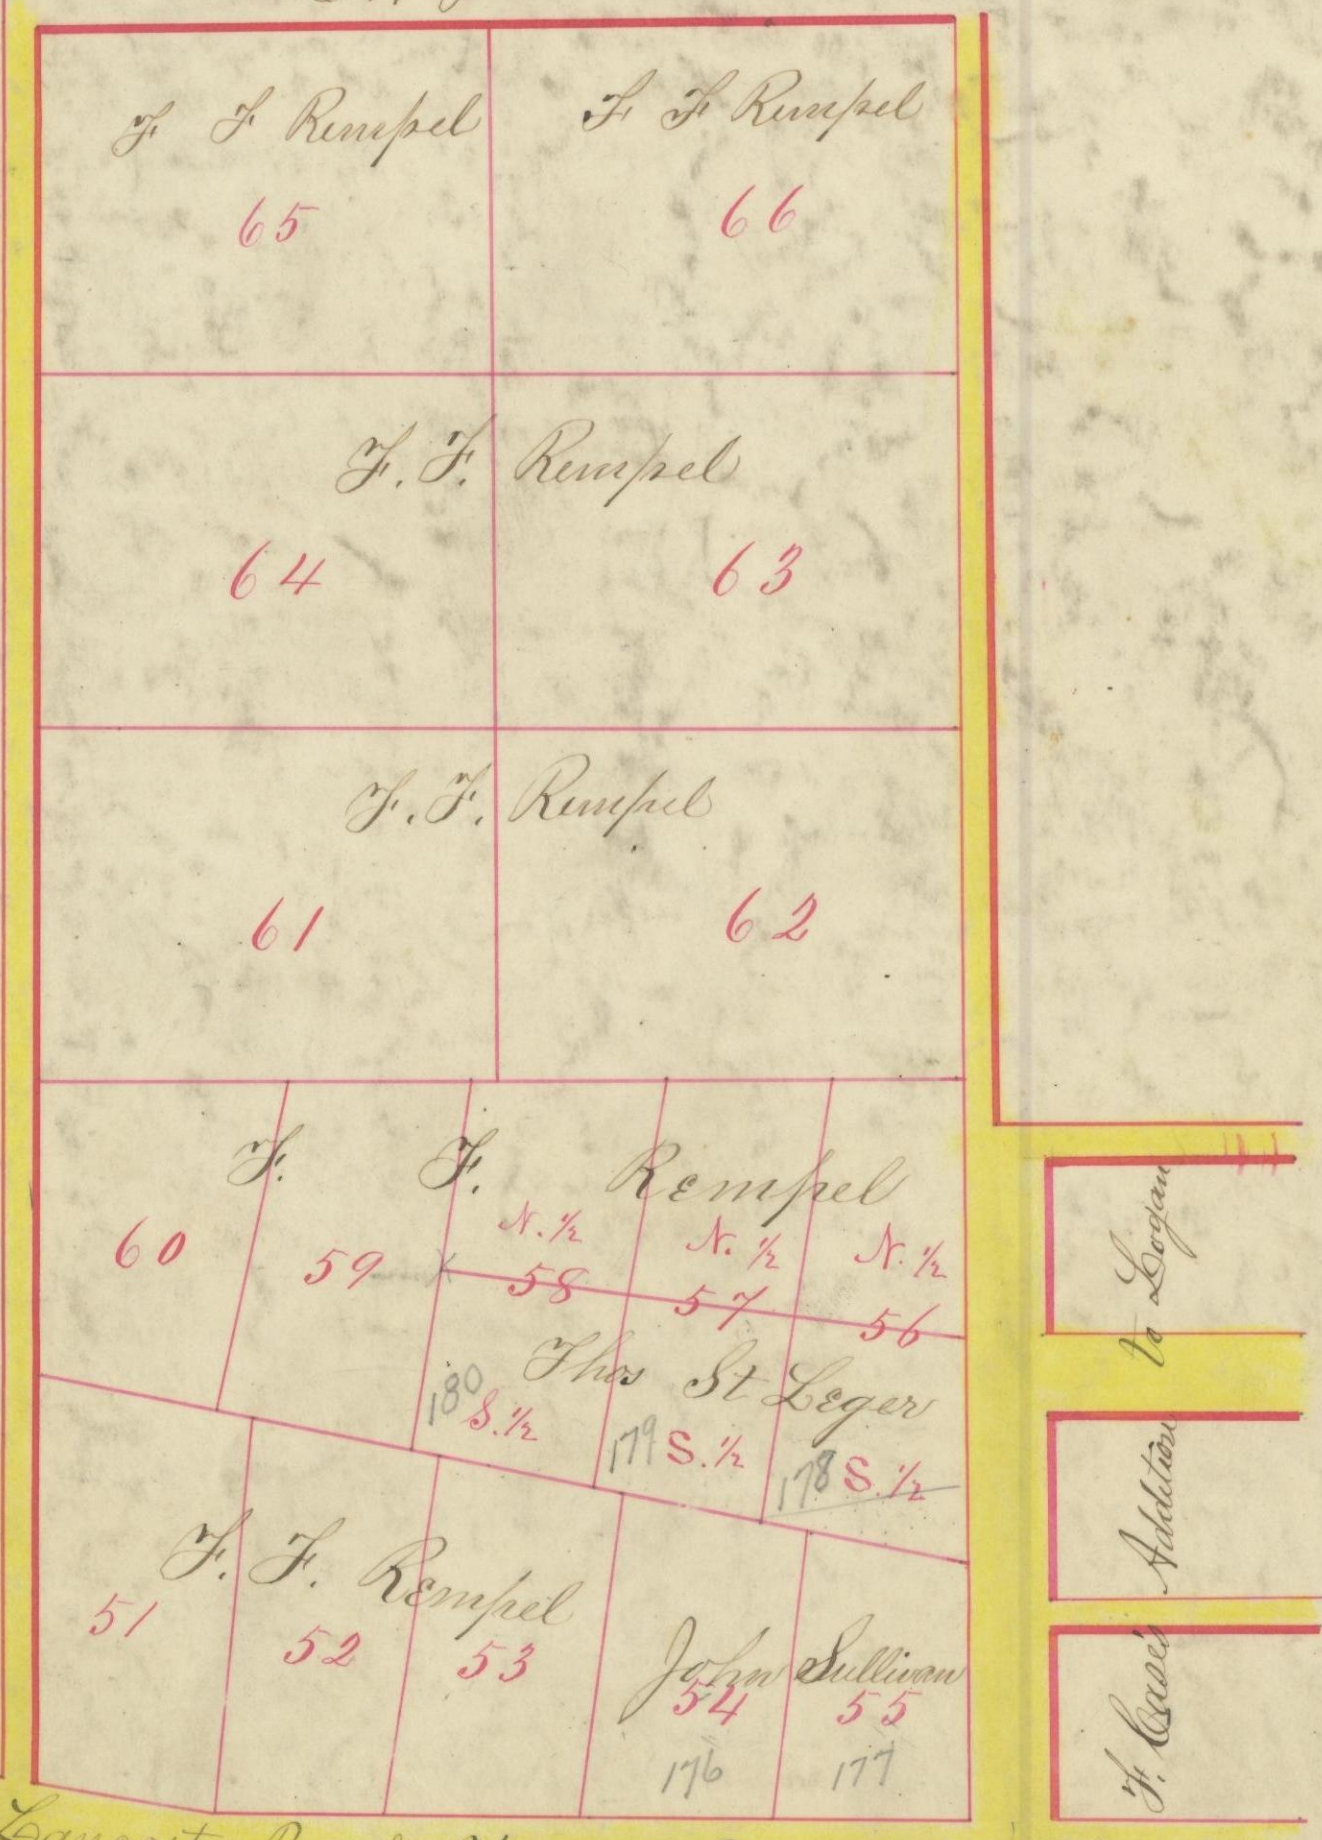 F F Rempel
F F Rempel
65
66
F. F. Rempel
64
63
F. F. Rempel
61
62
F. F. Rempel
N. ½
N. ½
N. ½
60
59
58
57
56
Thos St Leger
180 S. ½
179 S. ½
178 S. ½
F. F. Rempel
51
52
53
John Sullivan
54
55
176
177
F. Case's Addition to Logan